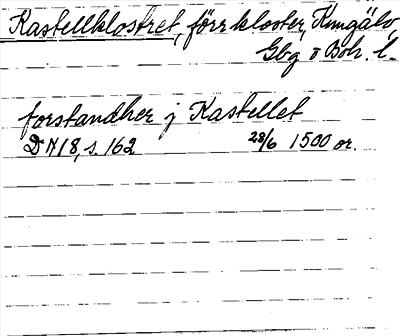 Kastellklostret, förr kloster, Kungälv,
Gbg o Boh. l.
forstandher j Kastellet
DN 18, s. 162 28/6 1500 or.